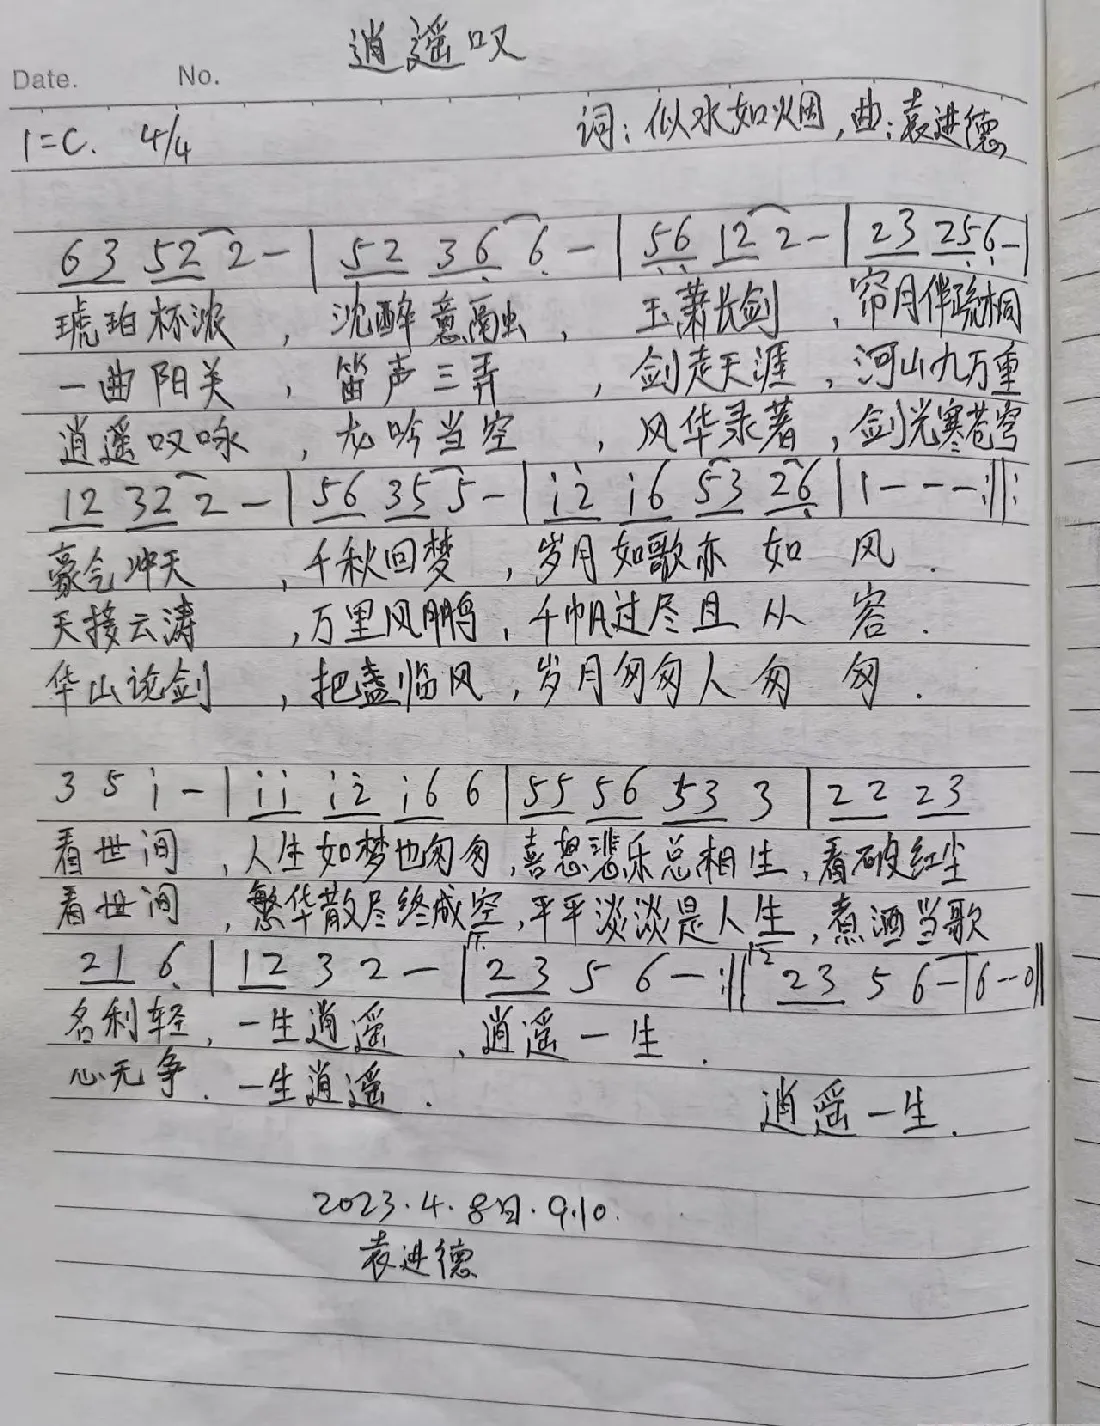 逍遥叹
Date. No.
1=C. 4/4 词：似水如烟，曲：袁进德
63 52 2 - | 52 36 6 - | 56 12 2 - | 23 256 - |
琥珀杯浓，沈醉意融，玉萧长剑，帘月伴疏桐
一曲阳关，笛声三弄，剑走天涯，河山九万重
逍遥叹咏，龙吟当空，风华录著，剑光寒苍穹
12 32 2 - | 56 35 5 - | i2 i6 53 26 | 1 - - - :||:
豪气冲天，千秋回梦，岁月如歌亦如风.
天接云涛，万里风鹏，千帆过尽且从容.
华山论剑，把盏临风，岁月匆匆人匆匆.
3 5 i - | ii i2 i6 6 | 55 56 53 3 | 22 23
看世间，人生如梦也匆匆，喜怒悲乐总相生，看破红尘
看世间，繁华散尽终成空，平平淡淡是人生，煮酒当歌
21 6 | 12 3 2 - | 1. 23 5 6 - :|| 2 23 5 6 - | 6 - 0 ||
名利轻，一生逍遥、逍遥一生.
心无争．一生逍遥． 逍遥一生.
2023.4.8日.9.10.
袁进德